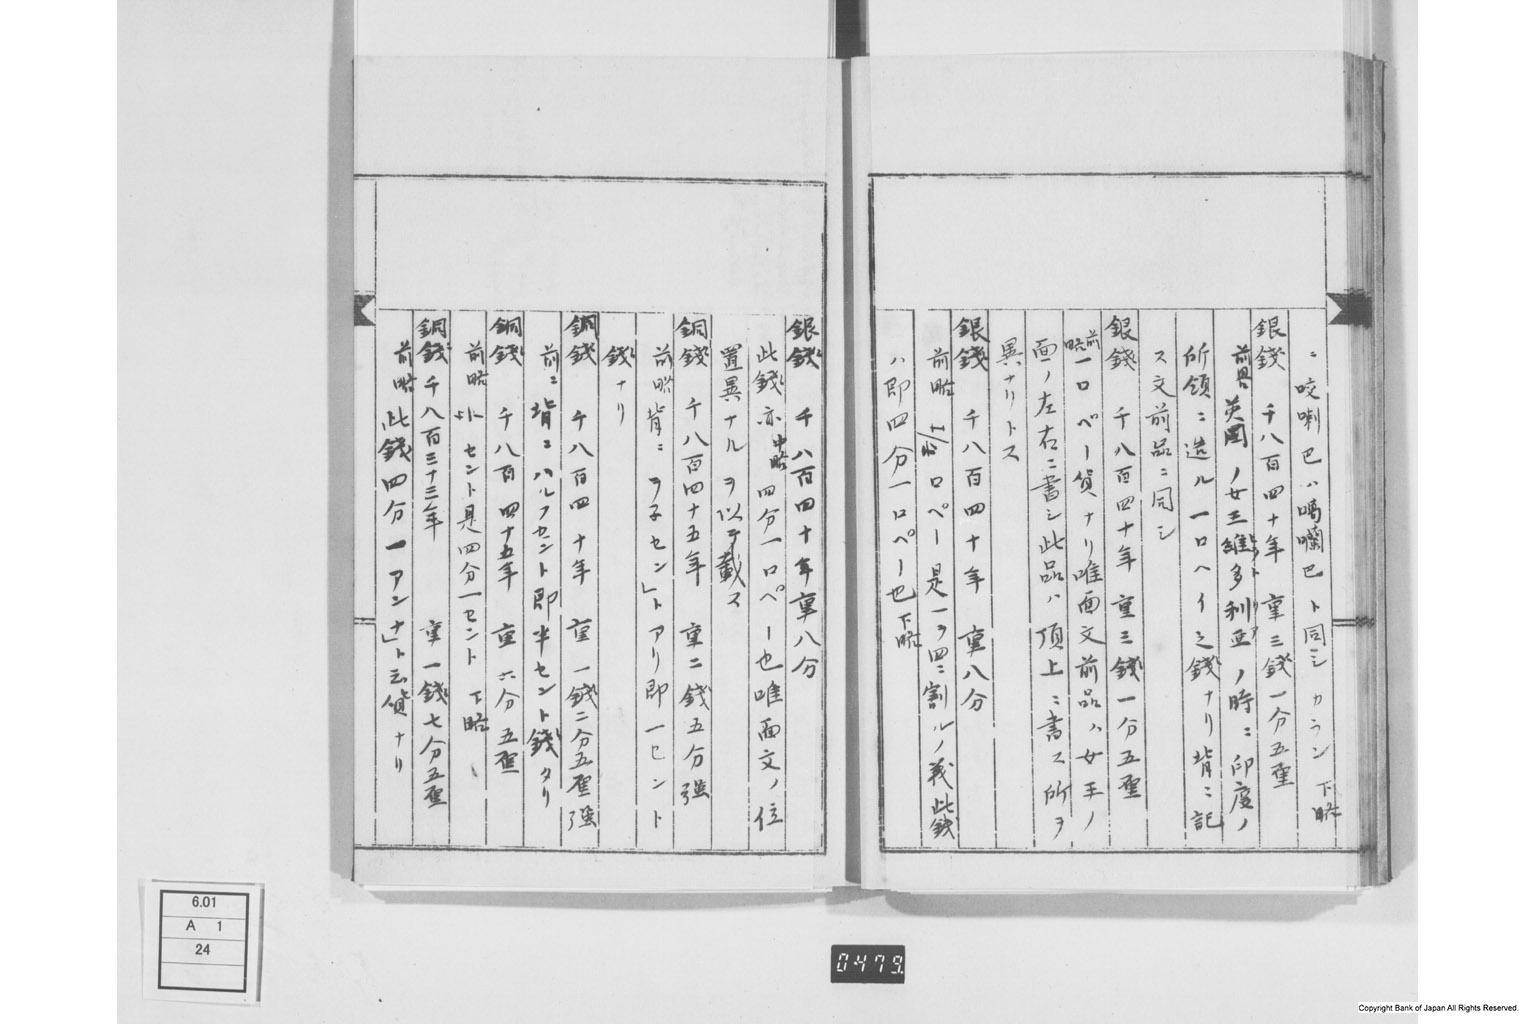 ニ咬𠺕巴ハ噶囒巴ト同シカラン 下略
銀錢 千八百四十年 重三錢一分五釐
前略英國ノ女王維多利亜ノ時ニ印度ノ
所領ニ造ル一ロヘイ之錢ナリ背ニ記
ス文前品ニ同シ
銀錢 千八百四十年 重三錢一分五釐
前略一ロペー貨ナリ唯面文前品ハ女王ノ
面ノ左右ニ書シ此品ハ頂上ニ書ス所ヲ
異ナリトス
銀錢 千八百四十年 重八分
前略 ロペー是一ヲ四ニ割ルノ義此錢
ハ即四分一ロペー也 下略
銀錢 千八百四十年 重八分
此錢亦中略四分一ロペー也唯面文ノ位
置異ナルヲ以テ載ス
銅錢 千八百四十五年 重二錢五分強
前略背ニヲ子セン」トアリ即一セント
錢ナリ
銅錢 千八百四十年 重一錢二分五釐強
前ニ背ニハルフセント即半セント錢タリ
銅錢 千八百四十五年 重六分五釐
前略 セント是四分一セント 下略
銅錢 千八百三十三年 重一錢七分五釐
前略此錢四分一アンナ」ト云貨ナリ
6.01
A 1
24
0479.
Copyright Bank of Japan All Rights Reserved.